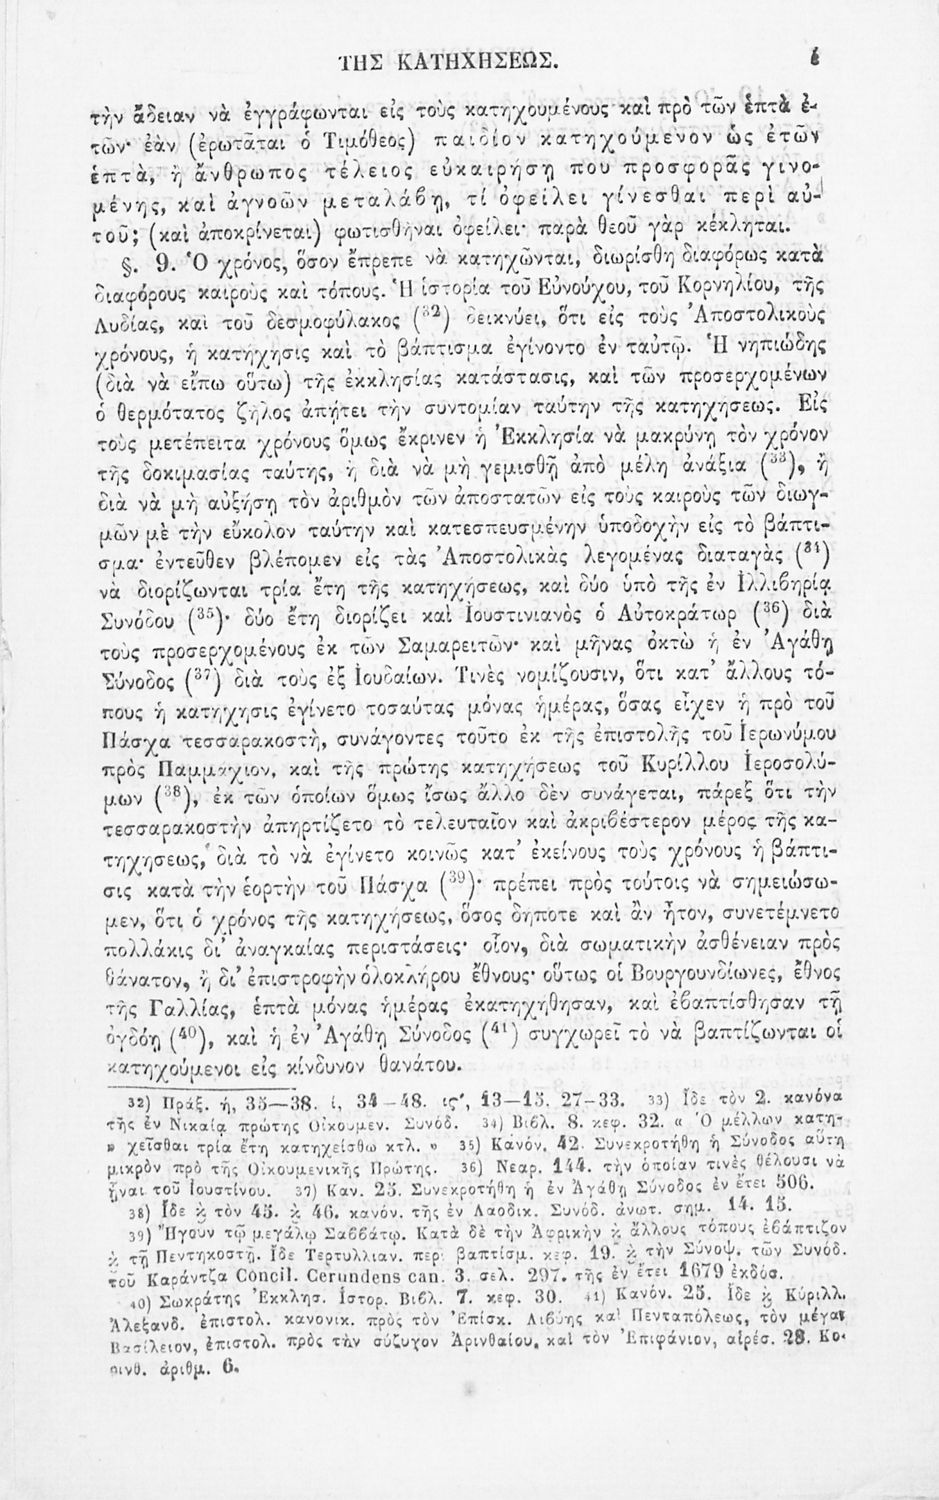 ΤΗΣ ΚΑΤΗΧΗΣΕΩΣ.
τὴν ἄδειαν νὰ ἐγγράφωνται εἰς τοὺς κατηχουμένους καὶ πρὸ τῶν ἑπτὰ ἐ-
τῶν· ἐὰν (ἐρωτᾶται ὁ Τιμόθεος) παιδίον κατηχούμενον ὡς ἐτῶν
ἑπτὰ, ἢ ἄνθρωπος τέλειος εὐκαιρήσῃ που προσφορᾶς γινο-
μένης, καὶ ἀγνοῶν μεταλάβῃ, τί ὀφείλει γίνεσθαι περὶ αὐ-
τοῦ; (καὶ ἀποκρίνεται) φωτισθῆναι ὀφείλει· παρὰ θεοῦ γὰρ κέκληται.
§. 9. Ὁ χρόνος, ὅσον ἔπρεπε νὰ κατηχῶνται, διωρίσθη διαφόρως κατὰ
διαφόρους καιροὺς καὶ τόπους. Ἡ ἱστορία τοῦ Εὐνούχου, τοῦ Κορνηλίου, τῆς
Λυδίας, καὶ τοῦ δεσμοφύλακος (32) δεικνύει, ὅτι εἰς τοὺς Ἀποστολικοὺς
χρόνους, ἡ κατήχησις καὶ τὸ βάπτισμα ἐγίνοντο ἐν ταὐτῷ. Ἡ νηπιώδης
(διὰ νὰ εἴπω οὕτω) τῆς ἐκκλησίας κατάστασις, καὶ τῶν προσερχομένων
ὁ θερμότατος ζῆλος ἀπῄτει τὴν συντομίαν ταύτην τῆς κατηχήσεως. Εἰς
τοὺς μετέπειτα χρόνους ὅμως ἔκρινεν ἡ Ἐκκλησία νὰ μακρύνῃ τὸν χρόνον
τῆς δοκιμασίας ταύτης, ἢ διὰ νὰ μὴ γεμισθῇ ἀπὸ μέλη ἀνάξια (33), ἢ
διὰ νὰ μὴ αὐξήσῃ τὸν ἀριθμὸν τῶν ἀποστατῶν εἰς τοὺς καιροὺς τῶν διωγ-
μῶν μὲ τὴν εὔκολον ταύτην καὶ κατεσπευσμένην ὑποδοχὴν εἰς τὸ βάπτι-
σμα· ἐντεῦθεν βλέπομεν εἰς τὰς Ἀποστολικὰς λεγομένας διαταγὰς (34)
νὰ διορίζωνται τρία ἔτη τῆς κατηχήσεως, καὶ δύο ὑπὸ τῆς ἐν Ἰλλιβηρίᾳ
Συνόδου (35)· δύο ἔτη διορίζει καὶ Ἰουστινιανὸς ὁ Αὐτοκράτωρ (36) διὰ
τοὺς προσερχομένους ἐκ τῶν Σαμαρειτῶν· καὶ μῆνας ὀκτὼ ἡ ἐν Ἀγάθῃ
Σύνοδος (37) διὰ τοὺς ἐξ Ἰουδαίων. Τινὲς νομίζουσιν, ὅτι κατ' ἄλλους τό-
πους ἡ κατήχησις ἐγίνετο τοσαύτας μόνας ἡμέρας, ὅσας εἶχεν ἡ πρὸ τοῦ
Πάσχα τεσσαρακοστὴ, συνάγοντες τοῦτο ἐκ τῆς ἐπιστολῆς τοῦ Ἱερωνύμου
πρὸς Παμμάχιον, καὶ τῆς πρώτης κατηχήσεως τοῦ Κυρίλλου Ἱεροσολύ-
μων (38), ἐκ τῶν ὁποίων ὅμως ἴσως ἄλλο δὲν συνάγεται, πάρεξ ὅτι τὴν
τεσσαρακοστὴν ἀπηρτίζετο τὸ τελευταῖον καὶ ἀκριβέστερον μέρος τῆς κα-
τηχήσεως, διὰ τὸ νὰ ἐγίνετο κοινῶς κατ' ἐκείνους τοὺς χρόνους ἡ βάπτι-
σις κατὰ τὴν ἑορτὴν τοῦ Πάσχα (39)· πρέπει πρὸς τούτοις νὰ σημειώσω-
μεν, ὅτι ὁ χρόνος τῆς κατηχήσεως, ὅσος δήποτε καὶ ἂν ἦτον, συνετέμνετο
πολλάκις δι' ἀναγκαίας περιστάσεις· οἷον, διὰ σωματικὴν ἀσθένειαν πρὸς
θάνατον, ἢ δι' ἐπιστροφὴν ὁλοκλήρου ἔθνους· οὕτως οἱ Βουργουνδίωνες, ἔθνος
τῆς Γαλλίας, ἑπτὰ μόνας ἡμέρας ἐκατηχήθησαν, καὶ ἐβαπτίσθησαν τῇ
ὀγδόῃ (40), καὶ ἡ ἐν Ἀγάθῃ Σύνοδος (41) συγχωρεῖ τὸ νὰ βαπτίζωνται οἱ
κατηχούμενοι εἰς κίνδυνον θανάτου.
32) Πράξ. ή, 35—38. ί, 34—48. ις', 13—15. 27—33. 33) Ἴδε τὸν 2. κανόνα
τῆς ἐν Νικαίᾳ πρώτης Οἰκουμεν. Συνόδ. 34) Βιβλ. 8. κεφ. 32. « Ὁ μέλλων κατη-
» χεῖσθαι τρία ἔτη κατηχείσθω κτλ. » 35) Κανόν. 42. Συνεκροτήθη ἡ Σύνοδος αὕτη
μικρὸν πρὸ τῆς Οἰκουμενικῆς Πρώτης. 36) Νεαρ. 144. τὴν ὁποίαν τινὲς θέλουσι νὰ
ᾖναι τοῦ Ἰουστίνου. 37) Καν. 25. Συνεκροτήθη ἡ ἐν Ἀγάθῃ Σύνοδος ἐν ἔτει 506.
38) Ἴδε ϗ τὸν 45. ϗ 46. κανόν. τῆς ἐν Λαοδικ. Συνόδ. ἀνωτ. σημ. 14. 15.
39) Ἤγουν τῷ μεγάλῳ Σαββάτῳ. Κατὰ δὲ τὴν Ἀφρικὴν ϗ ἄλλους τόπους ἐβάπτιζον
ϗ τῇ Πεντηκοστῇ. Ἴδε Τερτυλλιαν. περὶ βαπτίσμ. κεφ. 19. ϗ τὴν Σύνοψ. τῶν Συνόδ.
τοῦ Καράντζα Concil. Cerundens can. 3. σελ. 297. τῆς ἐν ἔτει 1679 ἐκδόσ.
40) Σωκράτης Ἐκκλησ. Ἱστορ. Βιβλ. 7. κεφ. 30. 41) Κανόν. 25. Ἴδε ϗ Κύριλλ.
Ἀλεξανδ. ἐπιστολ. κανονικ. πρὸς τὸν Ἐπίσκ. Λιβύης καὶ Πενταπόλεως, τὸν μέγαν
Βασίλειον, ἐπιστολ. πρὸς τὴν σύζυγον Ἀρινθαίου, καὶ τὸν Ἐπιφάνιον, αἱρέσ. 28. Κο-
ρινθ. ἀριθμ. 6.